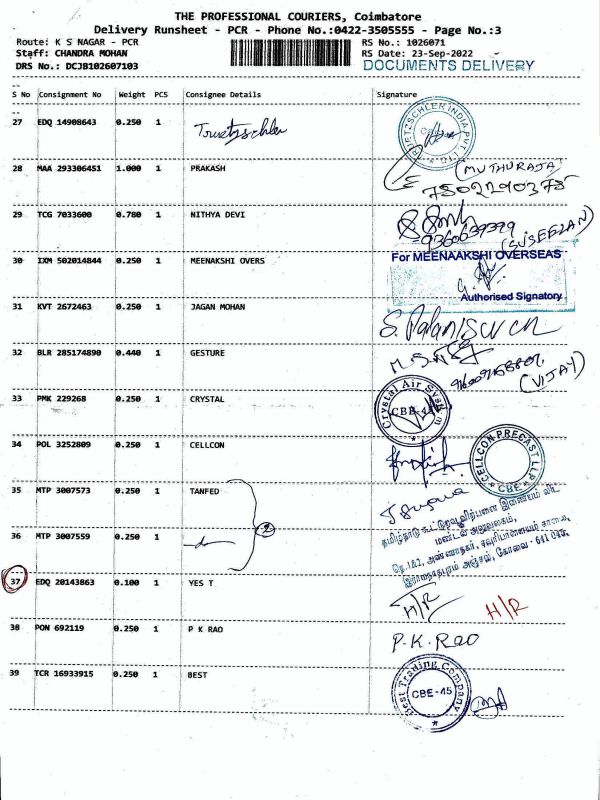 THE PROFESSIONAL COURIERS, Coimbatore
Delivery Runsheet - PCR - Phone No.:0422-3505555 - Page No.:3
Route: K S NAGAR - PCR RS No.: 1026071
Staff: CHANDRA MOHAN RS Date: 23-Sep-2022
DRS No.: DCJB102607103 DOCUMENTS DELIVERY
S No Consignment No Weight PCS Consignee Details Signature
27 EDQ 14908643 0.250 1 Truetzschler
28 MAA 293306451 1.000 1 PRAKASH (MUTHURAJA)
29 TCG 7033600 0.780 1 NITHYA DEVI
9360639399 (SUSEELAN)
30 IXM 502014844 0.250 1 MEENAKSHI OVERS For MEENAAKSHI OVERSEAS
Authorised Signatory
31 KVT 2672463 0.250 1 JAGAN MOHAN
32 BLR 285174890 0.440 1 GESTURE
(VIJAY)
33 PMK 229268 0.250 1 CRYSTAL Crystal Air System
34 POL 3252809 0.250 1 CELLCON CELLCON PRECAST LLP
CBE
35 MTP 3007573 0.250 1 TANFED
36 MTP 3007559 0.250 1 2
37 EDQ 20143863 0.100 1 YES T H/R H/R
38 PON 692119 0.250 1 P K RAO P.K.Rao
39 TCR 16933915 0.250 1 BEST Best Trading Company
CBE-45